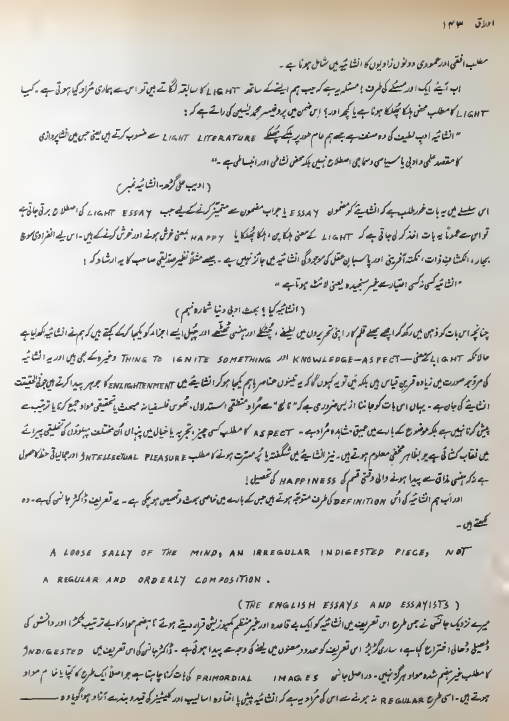 اوراق ۱۴۳
مطلب افقی اور عمودی دونوں زاویوں کا انشائیہ میں شامل ہونا ہے۔
اب آیئے ایک اور مسئلے کی طرف! مسئلہ یہ ہے کہ جب ہم ایسّے کے ساتھ LIGHT کا سابقہ لگاتے ہیں تو اس سے ہماری مُراد کیا ہوتی ہے۔ کیا
LIGHT کا مطلب محض ہلکا پھلکا ہونا ہے یا کچھ اور؟ اس ضمن میں پروفیسر محمد یٰسین کی رائے ہے کہ:
"انشائیہ ادبِ لطیف کی وہ صنف ہے جسے ہم عام طور پر ہلکے پھلکے LIGHT LITERATURE سے منسوب کرتے ہیں یعنی جس میں انشا پردازی
کا مقصد علمی و ادبی یا سیاسی و سماجی اصطلاح نہیں بلکہ محض نشاطی اور انبساطی ہے۔"
(ادیب علی گڑھ۔ انشائیہ نمبر)
اس سلسلے میں یہ بات غور طلب ہے کہ انشایئے کو مضمون ESSAY یا جواب مضمون سے متمیّز کرنے کے لیے جب LIGHT ESSAY کی اصطلاح برتی جاتی ہے
تو اس سے عموماً یہ بات اخذ کر لی جاتی ہے کہ LIGHT کے معنی ہلکا پن، ہلکا پُھلکا یا HAPPY بمعنی خوش ہونے اور خوش کرنے کے ہیں۔ اس لیے انفرادی سوچ
بچار، انکشافِ ذات، نکتہ آفرینی اور پاسبانِ عقل کی موجودگی انشائیہ میں جائز نہیں ہے۔ جیسے مثلاً نظیر صدیقی صاحب کا یہ ارشاد کہ:
"انشائیہ کسی نہ کسی اعتبار سے غیر سنجیدہ یعنی لائٹ ہوتا ہے"
(انشائیہ کیا؟ بحث ادبی دنیا شمارہ نہم)
چنانچہ اس بات کو ذہن میں رکھ کر اچھے بھلے قلم کار اپنی تحریروں میں لطیفے، چٹکلے اور ہنسی ٹھٹھے اور چہل ایسے اجزاء کو یکجا کر کے کہتے ہیں کہ ہم نے انشائیہ لکھ لیا ہے
حالانکہ LIGHT کے معنی KNOWLEDGE-ASPECT اور THING TO IGNITE SOMETHING وغیرہ کے بھی ہیں اور یہ انشائیہ
کی مروّجہ صورت میں زیادہ قرینِ قیاس ہیں بلکہ میں تو یہ کہوں گا کہ یہ تینوں عناصر باہم یکجا ہو کر انشایئے میں ENLIGHTENMENT کا جوہر پیدا کرتے ہیں جو فی الحقیقت
انشایئے کی جان ہے۔ یہاں اس بات کو جاننا از بس ضروری ہے کہ "نالج" سے مُراد منطقی استدلال، ٹھوس فلسفیانہ مبحث یا تحقیقی مواد جمع کرنا یا ترتیب سے
پیش کرنا نہیں ہے بلکہ موضوع کے بارے میں عمیق مشاہدہ مُراد ہے۔ ASPECT کا مطلب کسی چیز، تجربہ یا خیال میں پنہاں اُن مختلف پہلوؤں کی تخلیقی پیرائے
میں نقاب کشائی ہے جو بظاہر مخفی معلوم ہوتے ہیں۔ نیز انشایئے میں شگفتہ یا پُر مسرت ہونے کا مطلب INTELLECTUAL PLEASURE اور جمالیاتی حظ کا حصول
ہے نہ کہ ہنسی مذاق سے پیدا ہونے والی وقتی قسم کی HAPPINESS کی تحصیل!
اور اب ہم انشائیہ کی اُس DEFINITION کی طرف متوجہ ہوتے ہیں جس کے بارے میں خاصی بحث و تمحیص ہو چکی ہے۔ یہ تعریف ڈاکٹر جانسن کی ہے۔ وہ
لکھتے ہیں۔
A LOOSE SALLY OF THE MIND, AN IRREGULAR INDIGESTED PIECE, NOT
A REGULAR AND ORDERLY COMPOSITION.
(THE ENGLISH ESSAYS AND ESSAYISTS)
میرے نزدیک جانسن نے جس طرح اس تعریف میں انشائیہ کو ایک بے قاعدہ اور غیر منظم کمپوزیشن قرار دیتے ہوئے نا ہضم مواد کا بے ترتیب ٹکڑا اور دانش کی
ڈھیلی ڈھالی اختراع کہا ہے، ساری گڑبڑ اس تعریف کو محدود معنوں میں لینے کی وجہ سے پیدا ہوئی ہے۔ ڈاکٹر جانسن کی اس تعریف میں INDIGESTED
کا مطلب غیر ہضم شدہ مواد ہرگز نہیں۔ دراصل جانسن PRIMORDIAL IMAGES کی بات کرنا چاہتا ہے جو اصلاً ایک طرح کا کچّا یا خام مواد
ہوتے ہیں۔ اسی طرح REGULAR نہ ہونے سے اس کی مُراد یہ ہے کہ انشائیہ پیش پا افتادہ اسالیب اور کلیشئیز کی قید و بند سے آزاد ہو گویا وہ